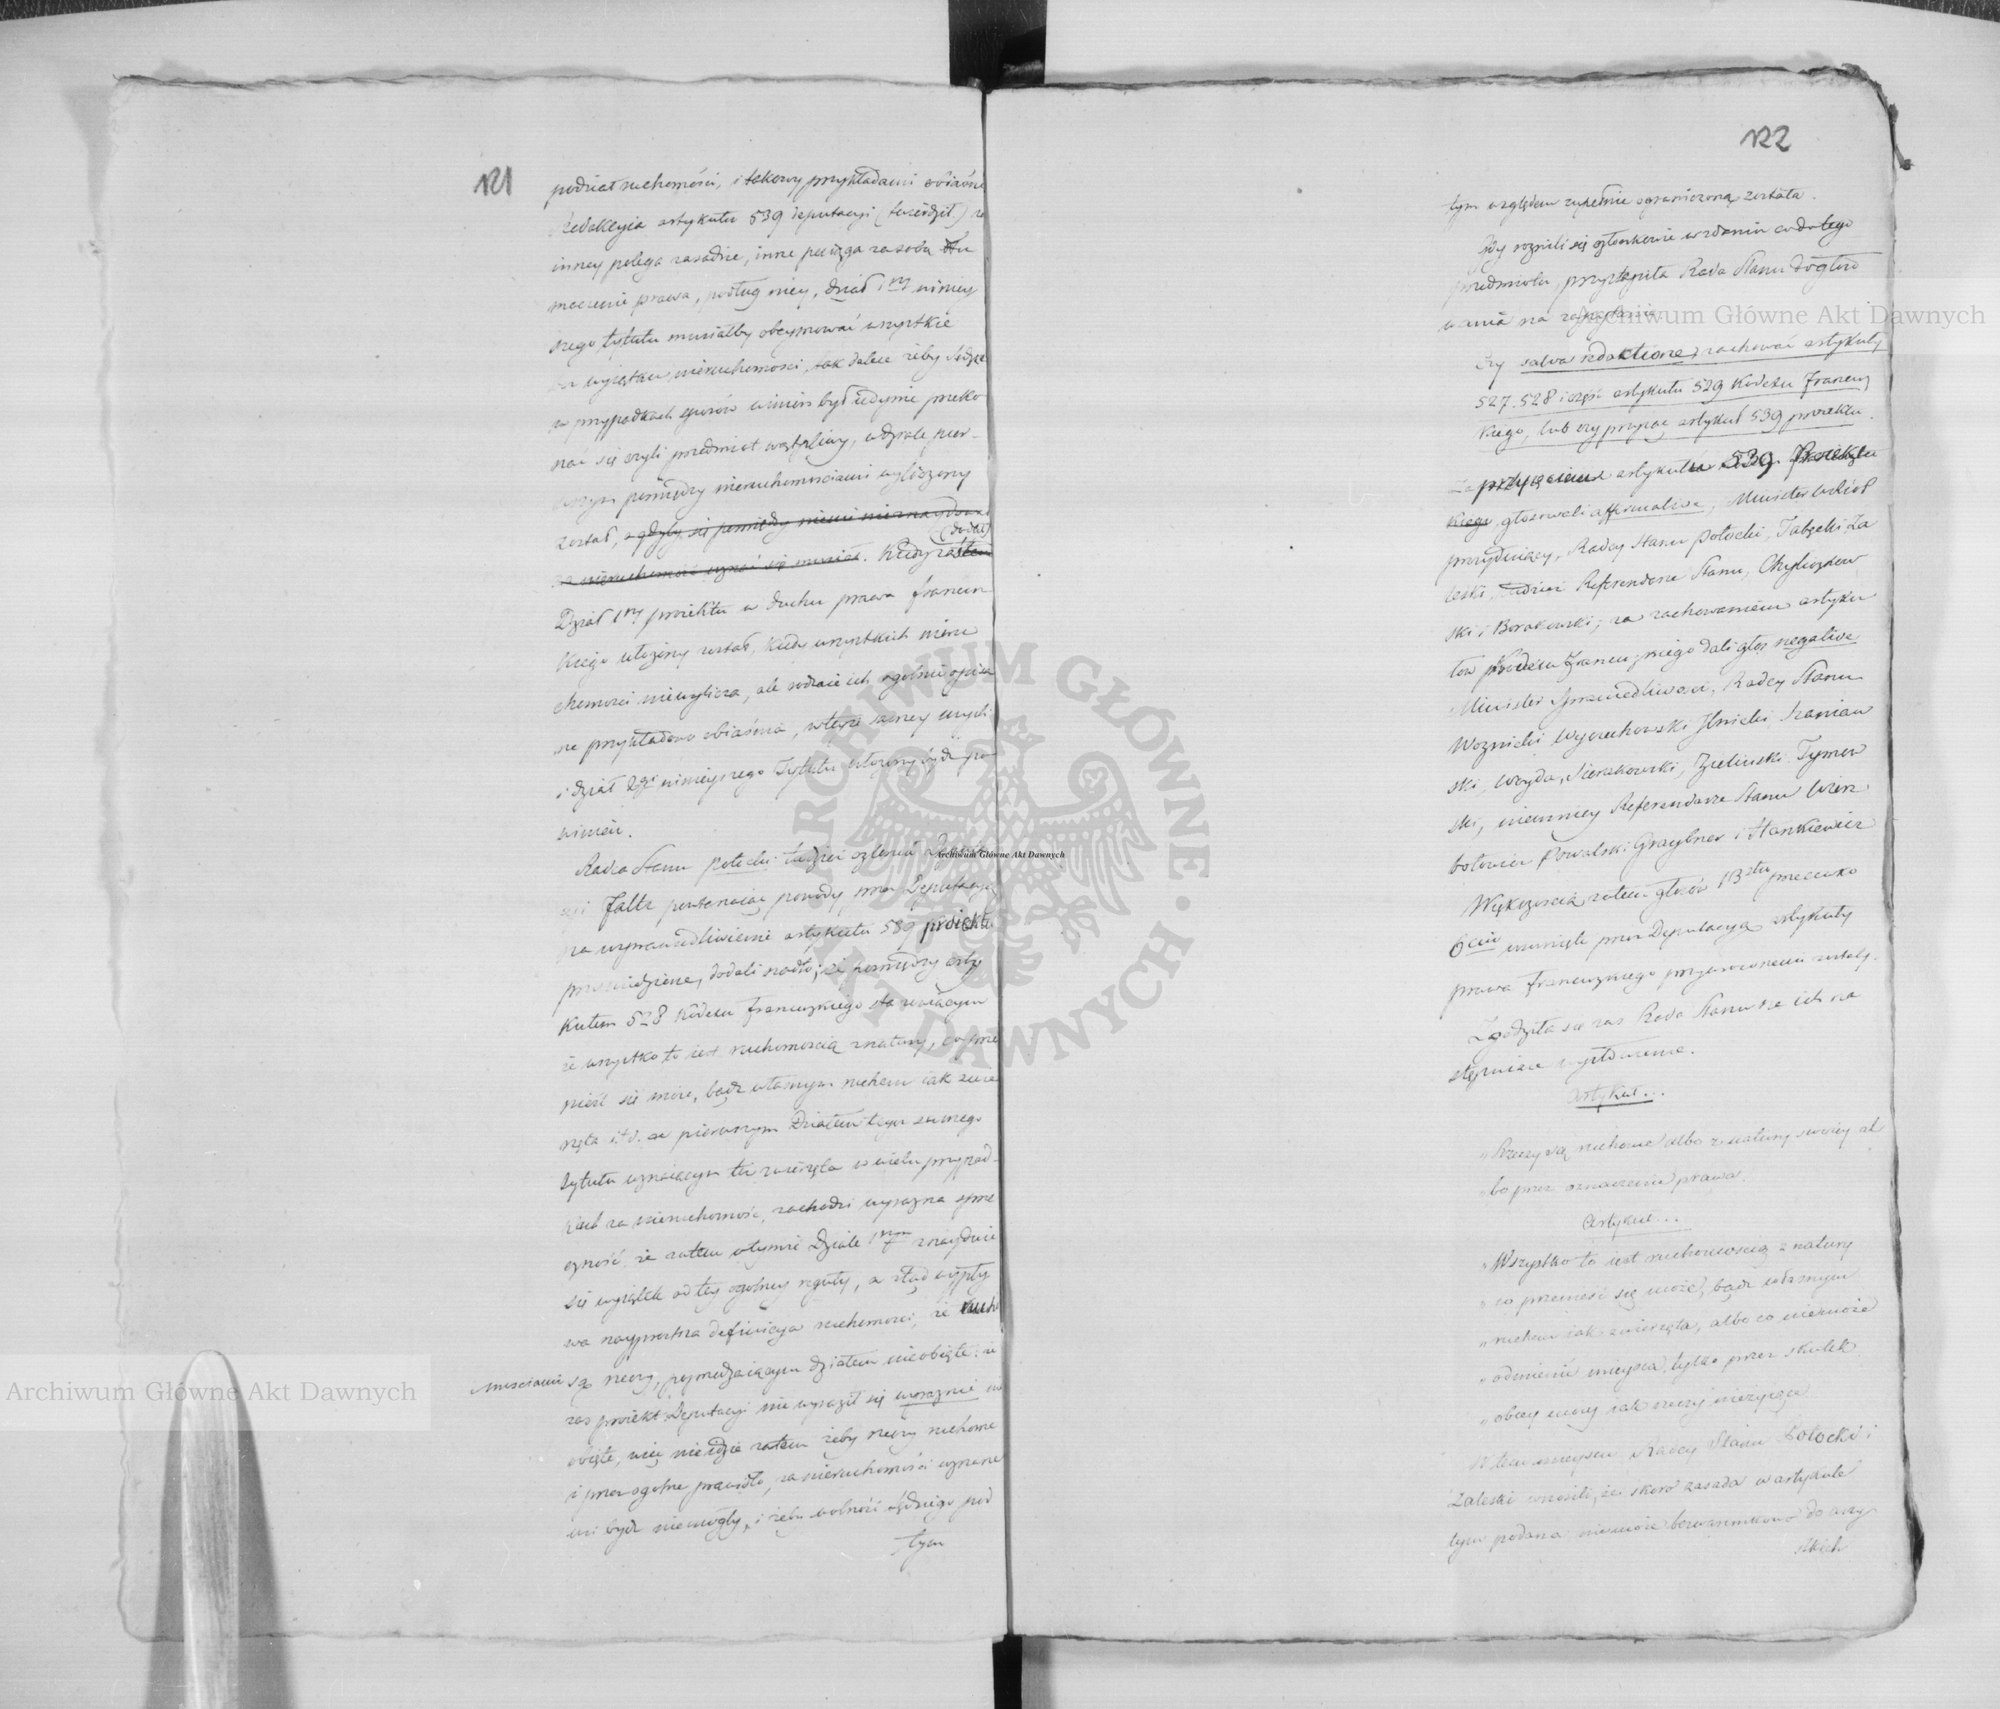 121
podział ruchomości, i takowy przykładami obiaśnia
redakcyia artykułu 539 deputacyi (twierdził) na
inney polega zasadzie, inne pociąga za sobą tłu
maczenie prawa, podług niey, dział 1ny niniey
szego tytułu musiałby obeymować wszystkie
bez wyiątku nieruchomości, tak dalece żeby Sędzia
w przypadkach sporów winien był iedynie przeko
nać się czyli przedmiot wątpliwy, w dziale pier-
wszym pomiędzy nieruchomościami wyliczony
został, a gdyby się pomiędzy niemi nieznaydował
za nieruchomość uznać się musiał. Kiedy zatem (dodał)
Dział 1ny proiektu w duchu prawa francuz
kiego ułożony został, kiedy wszystkich nieru
chomości niewylicza, ale rodzaie ich ogólnie opisu
ie przykładowo obiaśnia, w teyże samey myśli
i dział 2gi ninieyszego Tytułu ułożony być po
winien.
Radca Stanu Potocki tudzież członek Deputa
cyi Faltz powtarzaiąc powody przez Deputacyą
na usprawiedliwienie artykułu 539 proiektu
przywiedzione, dodali nadto; iż pomiędzy arty
kułem 528 Kodexu francuzkiego stanowiącym
że wszystko to iest ruchomością z natury, co prze
nieść się może, bądź własnym ruchem iak zwie
rzęta i.t.d. a pierwszym Działem tegoż samego
tytułu uznaiącym też zwierzęta w wielu przypad-
kach za nieruchomość, zachodzi wyraźna sprze
czność że zatem w tymże Dziale 1szym znayduie
się wyiątek od tey ogólney reguły, a ztąd wypły
wa nayprostsza definicya ruchomości, że rucho
mościami są rzeczy, poprzedzaiącym działem nieobięte: iż
zaś proiekt Deputacyi nie wyraził się wyraźnie nie
obięte, więc nieidzie zatem żeby rzeczy ruchome
i przez ogólne prawidło, za nieruchomości uznane
mi bydź niemogły, i żeby wolność sędziego pod
tym
122
tym względem zupełnie ograniczoną została.
Gdy różnili się członkowie w zdaniu co do tego
przedmiotu, przystąpiła Rada Stanu do głoso
wania na zapytanie
Czy salva redaktione, zachować artykuły
527. 528 i część artykułu 529 Kodexu francuz
kiego, lub czy przyiąć artykuł 539 proiektu.
Za przyięciem artykułu 539 Proiektu
głosowali affirmative, Minister Woiewoda
prezyduiący, Radcy Stanu Potocki, Za
leski, tudzież Referendarze Stanu, Chyliczkow
ski i Borakowski; za zachowaniem artyku
łów Kodexu francuzkiego dali głos negative
Minister Sprawiedliwości, Radcy Stanu
Woznicki Wyczechowski Ilnicki Szaniaw
ski, Woyda, Sierakowski, Zieliński Tymow
ski, niemniey Referendarze Stanu Wierz
bołowicz Kowalski Graybner i Stankiewicz
Większością zatem głosów 13stu przeciwko
6ciu usunięte przez Deputacyą artykuły
prawa francuzkiego przywrócone zostały.
Zgodziła się zaś Rada Stanu na ich na
stępuiące wysłowienie.
Artykuł...
„Rzeczy są ruchome albo z natury swoiey al
„bo przez oznaczenie prawa.
Artykuł...
„Wszystko to iest ruchomością z natury
„co przenieść się może, bądź własnym
„ruchem iak zwierzęta, albo co niemoże
„odmienić mieysca, tylko przez skutek
„obcey mocy iak rzeczy nieżyiące
W tem mieyscu Radcy Stanu Potocki i
Zaleski wnosili, że skoro zasada w artykule
tym podana niemoże bezwarunkowo do wszy
stkich
Archiwum Główne Akt Dawnych
Archiwum Główne Akt Dawnych
Archiwum Główne Akt Dawnych
ARCHIWUM GŁÓWNE · AKT DAWNYCH ·